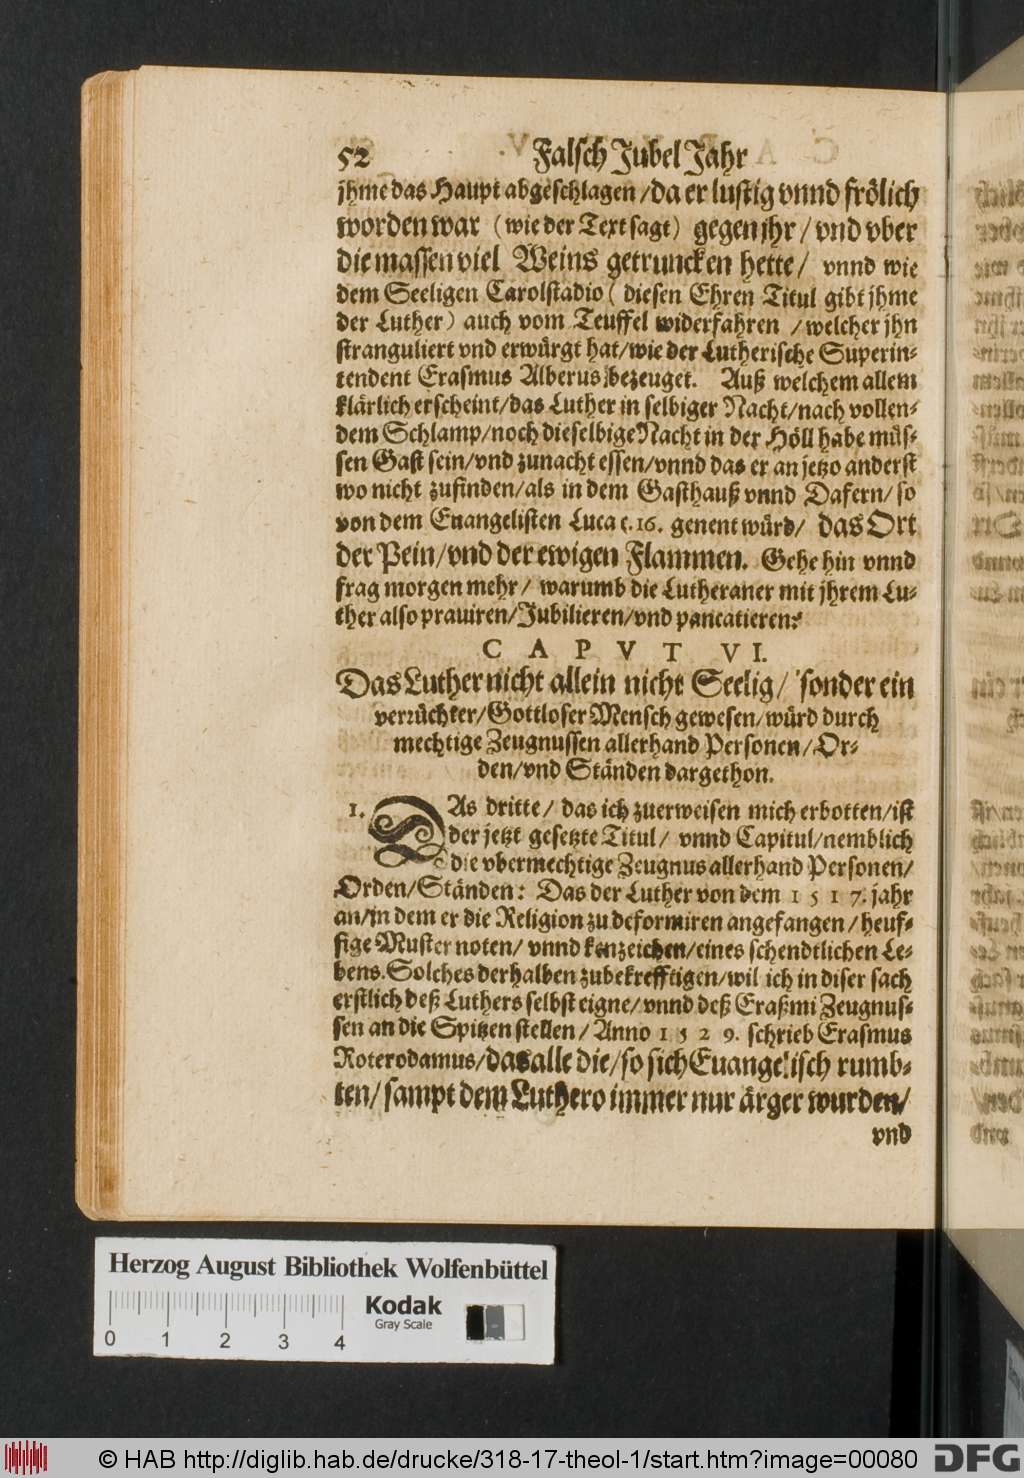 52 Falsch Jubel Jahr
jhme das Haupt abgeschlagen / da er lustig vnnd frölich
worden war (wie der Text sagt) gegen jhr / vnd vber
die massen viel Weins getruncken hette / vnnd wie
dem Seeligen Carolstadio ( diesen Ehren Titul gibt jhme
der Luther) auch vom Teuffel widerfahren / welcher jhn
stranguliert vnd erwürgt hat/wie der Lutherische Superin-
tendent Erasmus Alberus bezeuget. Auß welchem allem
klärlich erscheint/das Luther in selbiger Nacht/nach vollen-
dem Schlamp/noch dieselbige Nacht in der Höll habe müs-
sen Gast sein/vnd zunacht essen/vnnd das er an jetzo anderst
wo nicht zufinden/als in dem Gasthauß vnnd Dafern/ so
von dem Euangelisten Luca c.16. genent würd/ das Ort
der Pein/vnd der ewigen Flammen. Gehe hin vnnd
frag morgen mehr / warumb die Lutheraner mit jhrem Lu-
ther also prauiren/Jubilieren/vnd pancatieren?
CAPVT VI.
Das Luther nicht allein nicht Seelig / sonder ein
verrüchter/Gottloser Mensch gewesen/würd durch
mechtige Zeugnussen allerhand Personen/Or-
den/vnd Ständen dargethon.
1. DAs dritte / das ich zuerweisen mich erbotten/ist
der jetzt gesetzte Titul / vnnd Capitul/nemblich
die vbermechtige Zeugnus allerhand Personen/
Orden/Ständen: Das der Luther von dem 1517. jahr
an/in dem er die Religion zu deformiren angefangen / heuf-
fige Muster noten/ vnnd kenzeichen/eines schendtlichen Le-
bens. Solches derhalben zubekrefftigen/wil ich in diser sach
erstlich deß Luthers selbst eigne/vnnd deß Eraßmi Zeugnus-
sen an die Spitzen stellen / Anno 1529. schrieb Erasmus
Roterodamus/das alle die/so sich Euangelisch rumb-
ten/sampt dem Luthero immer nur ärger wurden/
vnd
Herzog August Bibliothek Wolfenbüttel
Kodak
Gray Scale
0 1 2 3 4
© HAB http://diglib.hab.de/drucke/318-17-theol-1/start.htm?image=00080
DFG